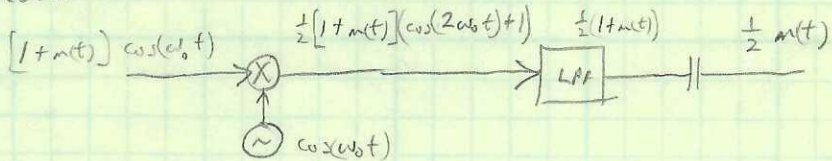 [1+m(t)] cos(ω₀t)
½[1+m(t)](cos(2ω₀t)+1)
½(1+m(t))
½ m(t)
X
LPF
~ cos(ω₀t)